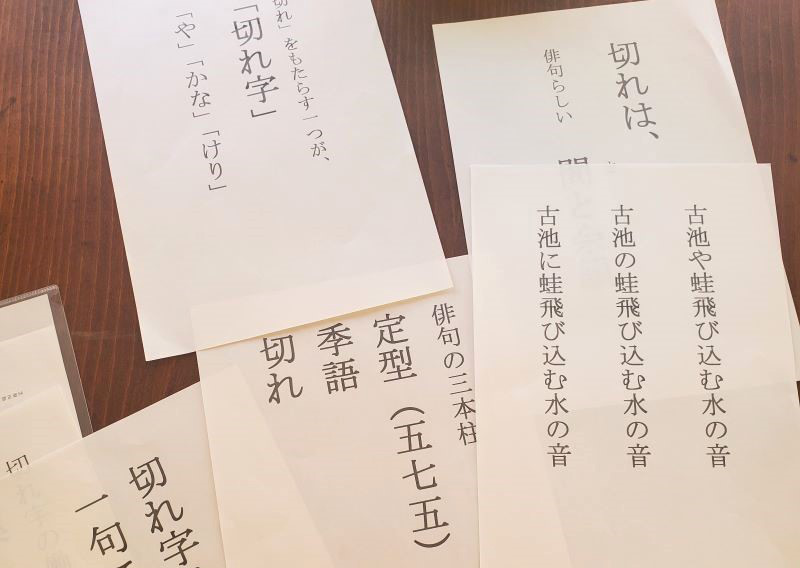 切れ」をもたらす一つが、
「切れ字」
「や」「かな」「けり」
切れは、
俳句らしい
古池や蛙飛び込む水の音
古池の蛙飛び込む水の音
古池に蛙飛び込む水の音
俳句の三本柱
定型（五七五）
季語
切れ
切れ字
一句
切